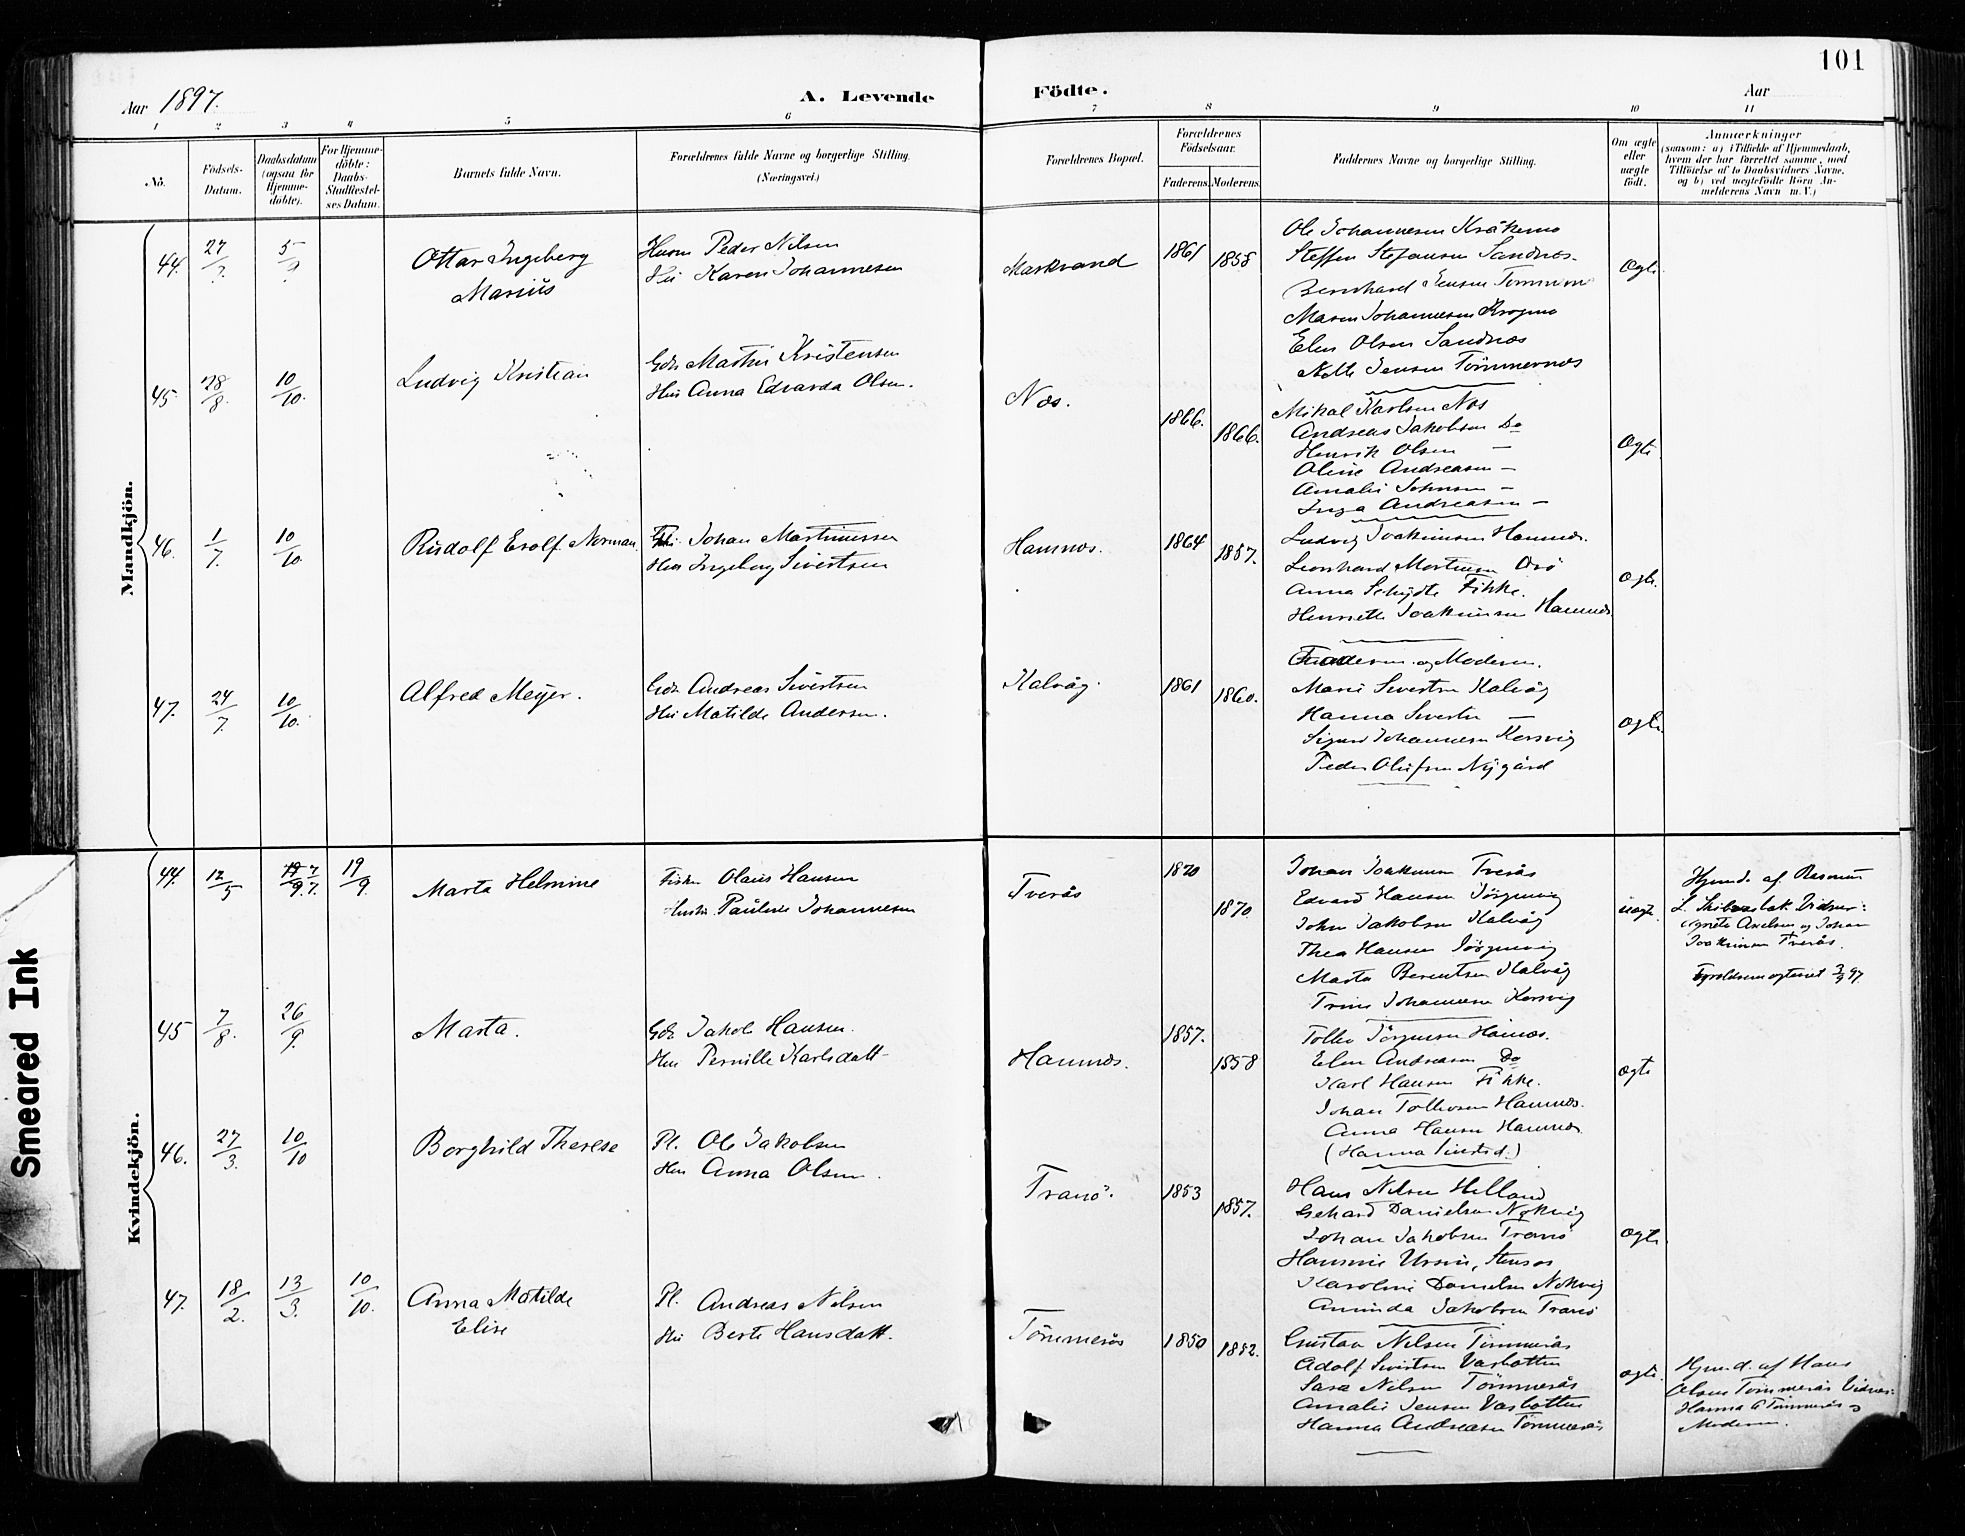 101
Aar 1897.
A. Levende Födte.
Aar
1 2 3 4 5 6 7 8 9 10 11
No.
Födsels-Datum.
Daabsdatum (ogsaa for Hjemme-döbte).
For Hjemme-döbte: Daabs-Stadfæstel-ses Datum.
Barnets fulde Navn.
Forældrenes fulde Navne og borgerlige Stilling.
(Næringsvei.)
Forældrenes Bopæl.
Forældrenes Födselsaar.
Faderens. Moderens.
Faddernes Navne og borgerlige Stilling.
Om ægte eller uægte født.
Anmærkninger
(saasom: a) i Tilfælde af Hjemmedaab,
hvem der har forrettet samme, med
Tilföielse af to Daabsvidners Navne.
og b) ved uægtefödte Börn An-
melderens Navn m. V.)
Mandkjön.
44. 27/7 5/9
Ottar Ingeberg
Marius
Peder Nilsen
Karen Johannesen
1861 1858
Ole Johannesen
Steffen Stefansen Sandnæs.
Bernhard Jensen
Maren Johannesen
Elen Olsen Sandnæs
Jensen Tømmernæs
Ægte
45. 28/8 10/10.
Ludvig Kristian
Gdr. Martin Kristensen
Hu Anna Edvarda Olsen.
Næs.
1866. 1866.
Mikal Karlsen Næs
Andreas Jakobsen Do
Henrik Olsen —
Oline Andreasen —
Amalie Johnsen —
Inga Andreasen —
Ægte
46. 1/7. 10/10.
Rudolf Erolf Norman
Johan Martinussen
Hu Ingeborg Sivertsen
Hamnæs.
1864 1857.
Ludvig Joakimsen Hamnæs.
Leonhard Mortensen
Anna Fikke.
Henriette Joakimsen Hamnæs
Ægte.
47. 24/7. 10/10.
Alfred Meyer.
Gdr. Andreas Sivertsen
Hu Matilde Andersen.
Kalvåg.
1861 1860.
Faderen og Moderen.
Marie Sivertsen Kalvåg
Hanna Sivertsen —
Sigurd Johannesen Korsvig
Peder Olufsen Nygård
Ægte.
Kvindekjön.
44. 12/5 7/7. 19/9.
Marta Helmine
Fisker Olaus Hansen
Hustr. Pauline Johannesen
Tverås
1870 1870.
Johan Joakimsen Tverås
Edvard Hansen Jörgenvig
John Jakobsen Kalvåg
Thea Hansen Jörgenvig
Marta Berentsen Kalvåg
Trine Johannesen Korsvig
uægte.
Hjemd. af Rasmus
L. Vidner:
Agnete Axelsen og Johan
Joakimsen Tverås.
Forældrene ægteviet 97
45 7/8. 26/9.
Marta.
Gdr. Jakob Hansen.
Hu Pernille Karlsdatt
Hamnæs.
1857. 1858
Tollev Jörgensen Hamnæs.
Elen Andreasen Do
Karl Hansen Fikke.
Johan Tollevsen Hamnæs.
Anna Hansen Hamnæs
Ægte
46. 27/3. 10/10
Borghild Therese
Pl. Ole Jakobsen
Hu Anna Olsen.
Tranö.
1853 1857.
Hans Nilsen Helland
Gerhard Danielsen Nökvig
Johan Jakobsen Tranö
Hammine Ursin,
Karoline Danielsen Nökvig
Aminda Jakobsen Tranö
Ægte.
47. 18/2. 13/3. 10/10.
Anna Matilde
Elise
Pl. Andreas Nilsen
Hu Berte Hansdatt.
Tömmerås
1850 1852.
Gustav Nilsen Tömmerås
Adolf Sivertsen Vasbotten
Sara Nilsen Tömmerås
Amalie Jensen Vasbotten
Hanna Andreasen Tömmerås
Ægte.
Hjemd. af Hans
Olsen Tömmerås Vidner:
Hanna Tömmerås og
Moderen.
Smeared Ink